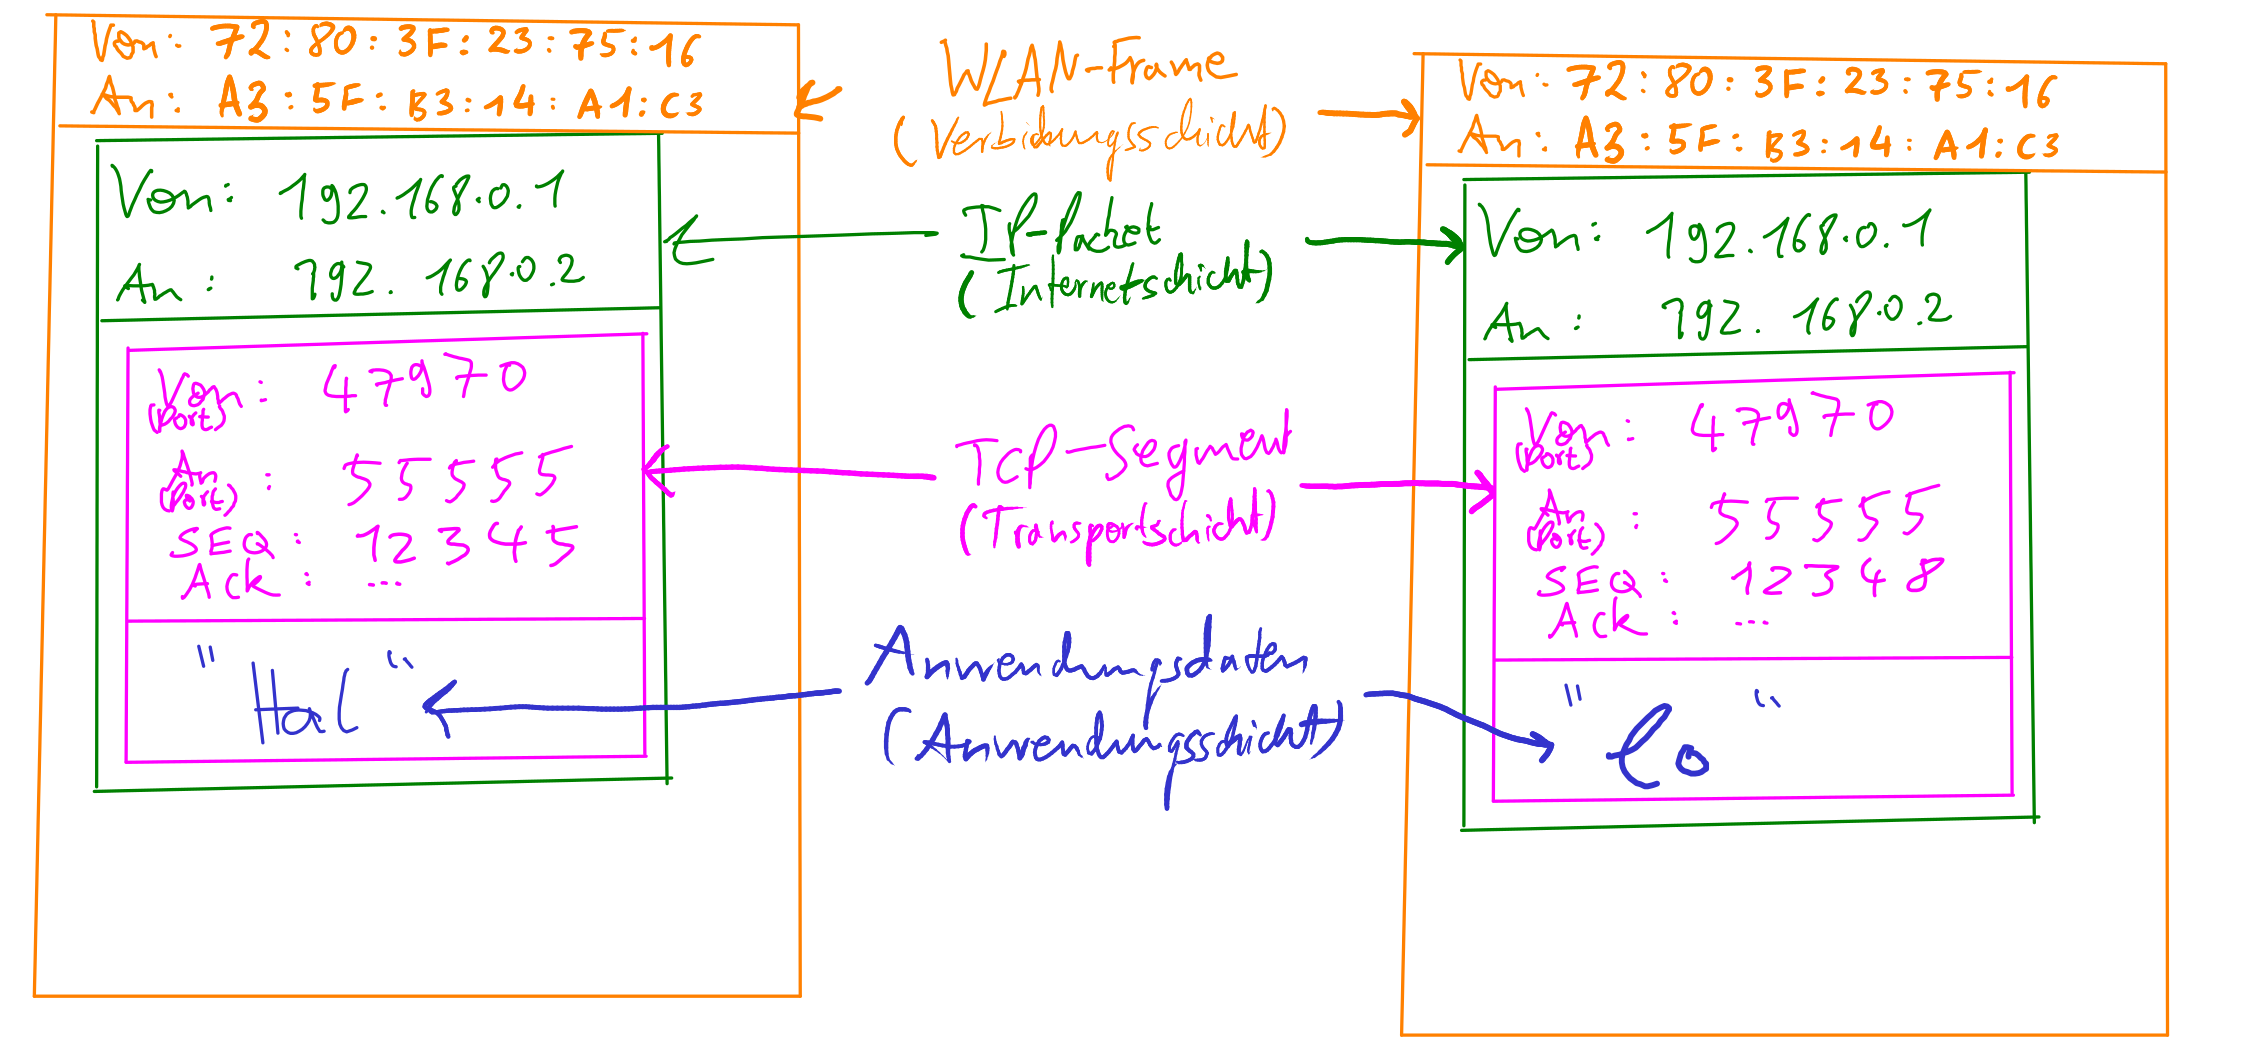 Von: 72:80:3F:23:75:16
An: A3:5F:B3:14:A1:C3
Von: 192.168.0.1
An: 192.168.0.2
Von: 47970
(Port)
An: 55555
(Port)
SEQ: 12345
Ack: ...
"Hal"
WLAN-Frame
(Verbidungsschicht)
IP-Packet
(Internetschicht)
TCP-Segment
(Transportschicht)
Anwendungsdaten
(Anwendungsschicht)
Von: 72:80:3F:23:75:16
An: A3:5F:B3:14:A1:C3
Von: 192.168.0.1
An: 192.168.0.2
Von: 47970
(Port)
An: 55555
(Port)
SEQ: 12348
Ack: ...
"lo"